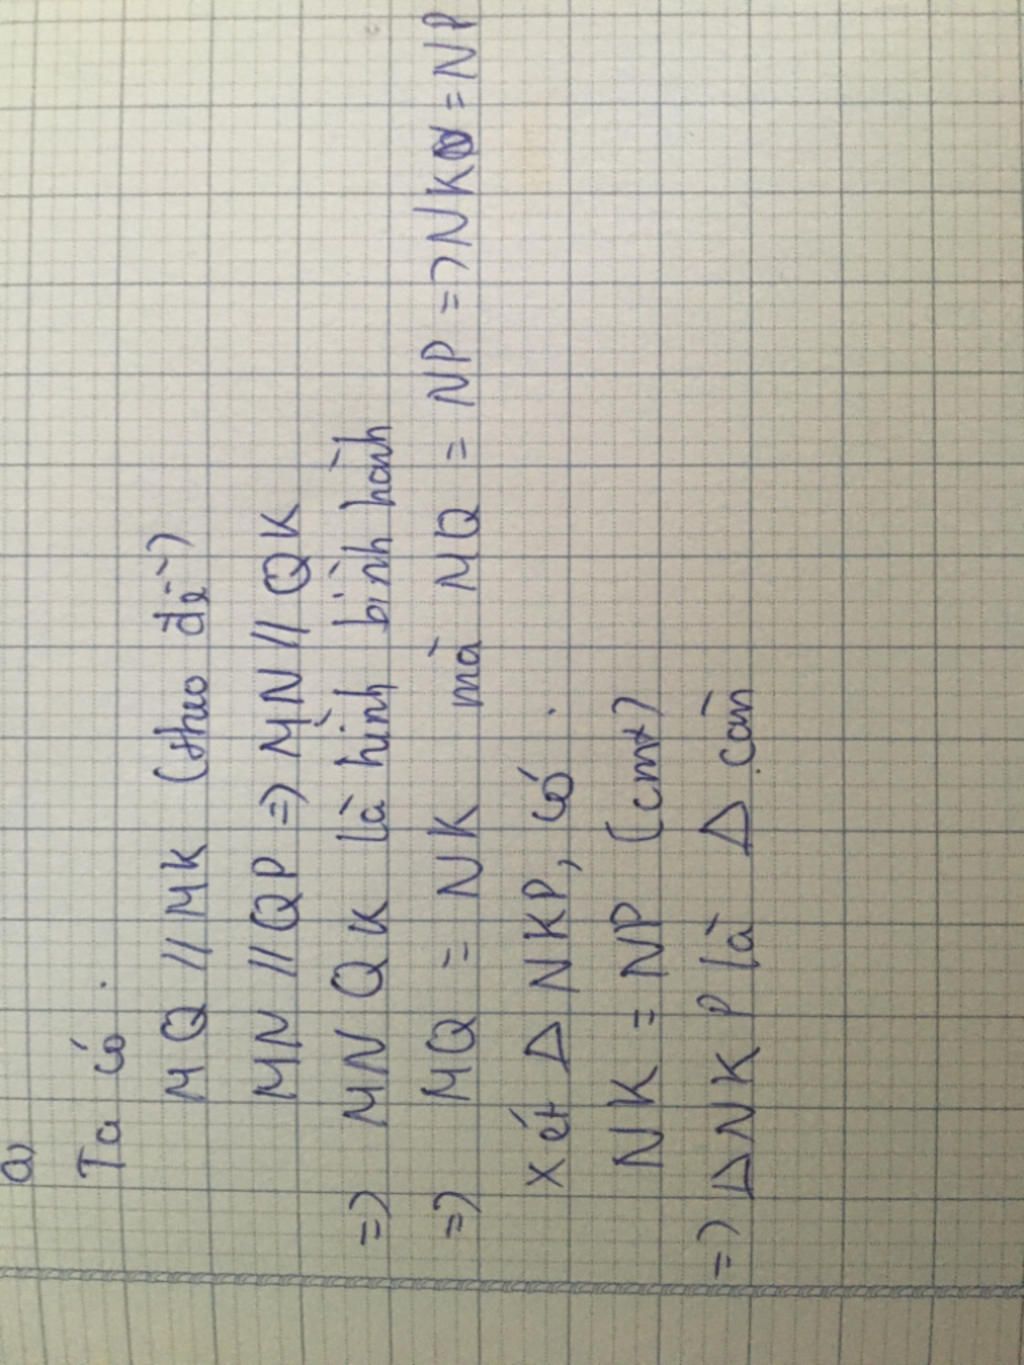 a)
Ta có:
MQ // MK (theo đề)
MN // QP => MN // QK
=> MN QK là hình bình hành
=> MQ = NK mà MQ = NP => NK = NP
xét Δ NKP, có:
NK = NP (cmt)
=> Δ NK P là Δ cân